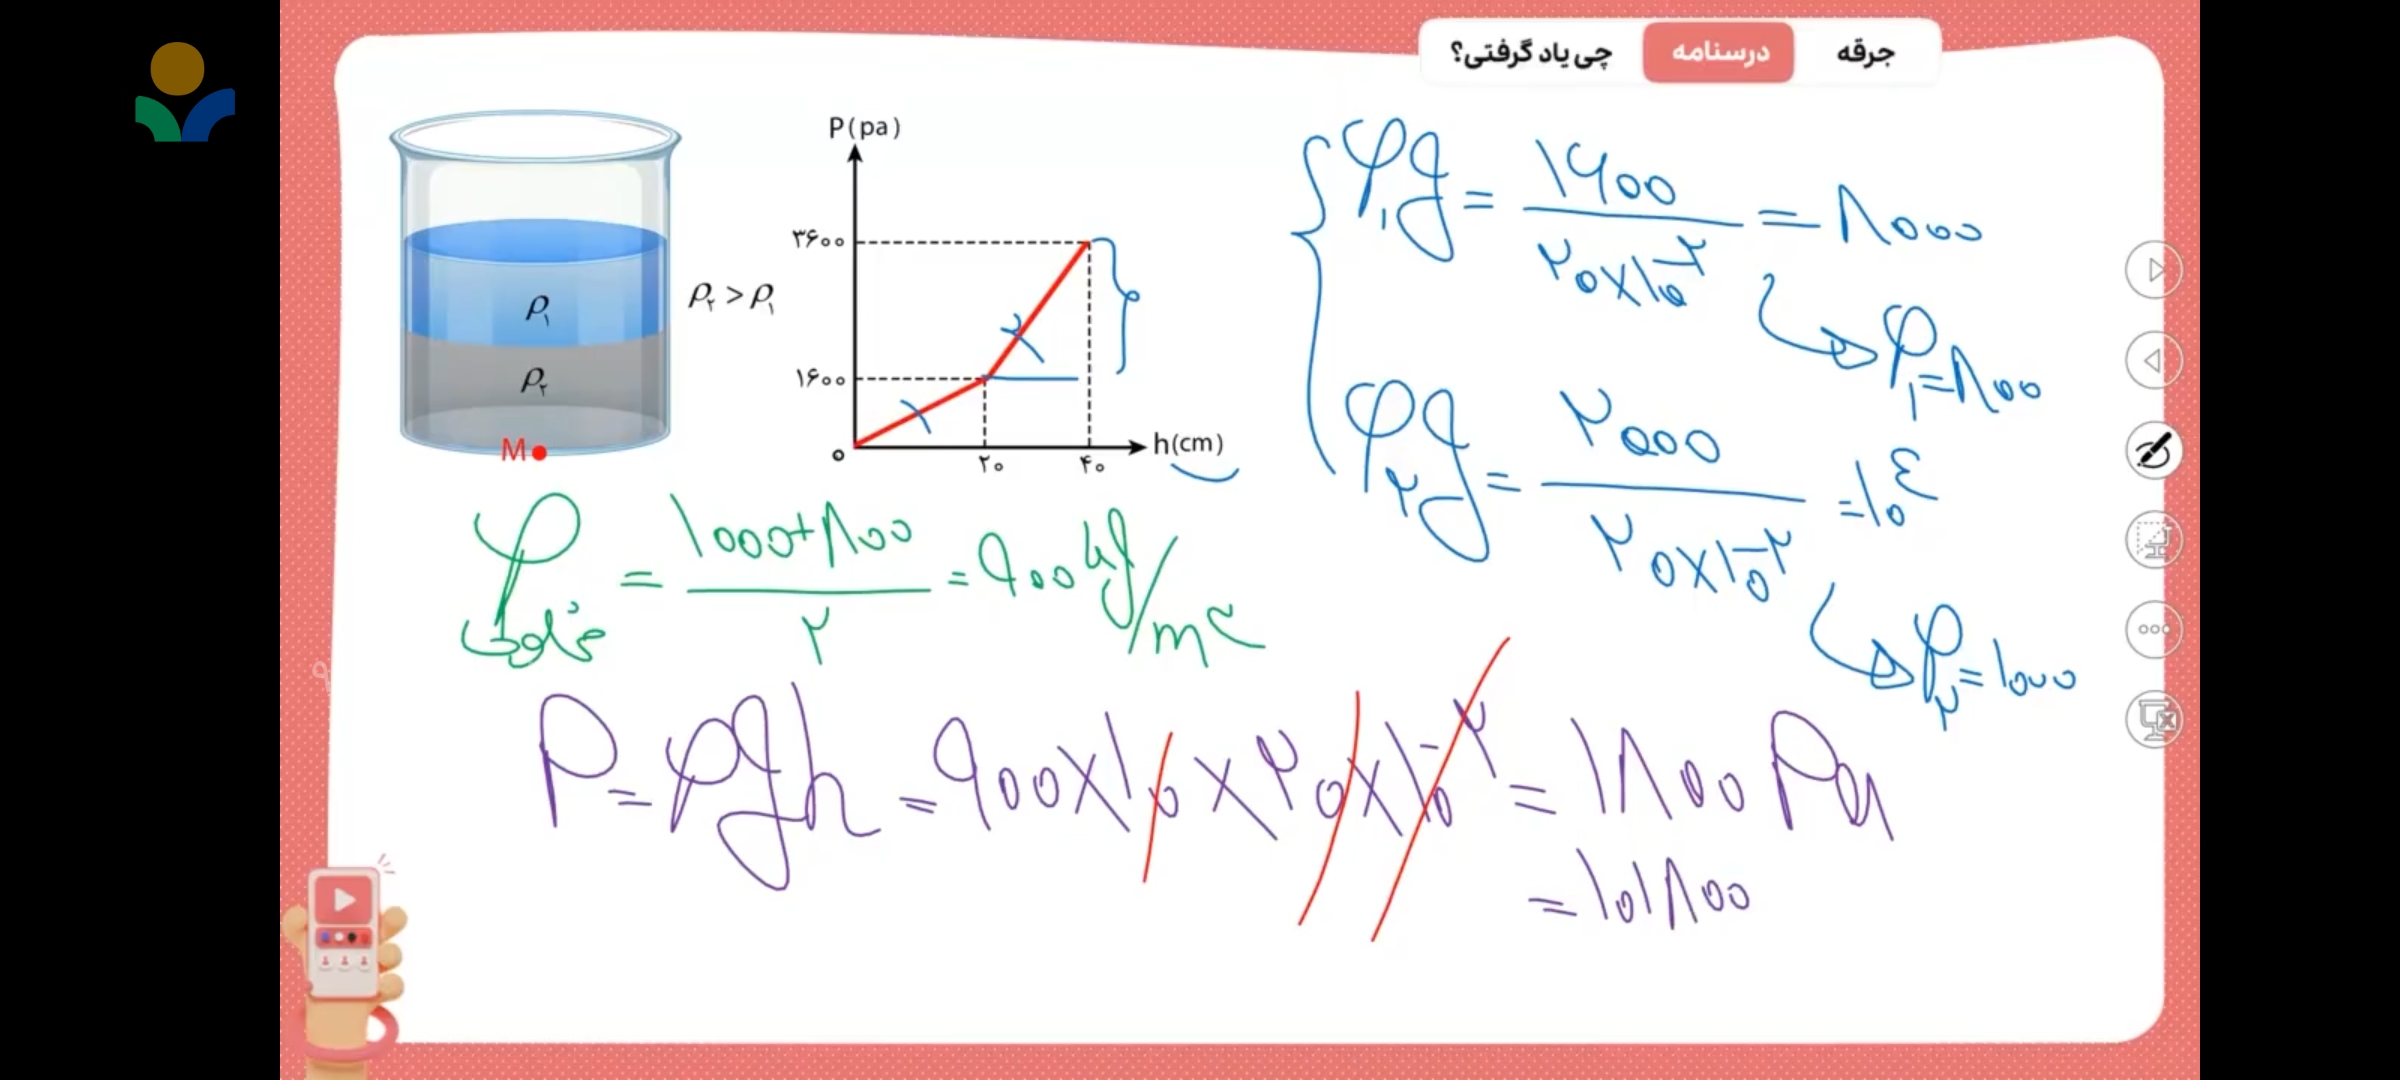 جرقه
درسنامه
چی یاد گرفتی؟
P(pa)
۳۶۰۰
۱۶۰۰
۰
۲۰
۴۰
h(cm)
۱
۲
ρ۱
ρ۲
ρ۲ > ρ۱
M
ρ۱g = ۱۶۰۰ / ۲۰×۱۰^-۲ = ۸۰۰۰
ρ۱ = ۸۰۰
ρ۲g = ۲۰۰۰ / ۲۰×۱۰^-۲ = ۱۰^۴
ρ۲ = ۱۰۰۰
ρ مخلوط = ۱۰۰۰+۸۰۰ / ۲ = ۹۰۰ kg/m^۳
P = ρgh = ۹۰۰×۱۰×۲۰×۱۰^-۲ = ۱۸۰۰ Pa
= ۱۰۱۸۰۰